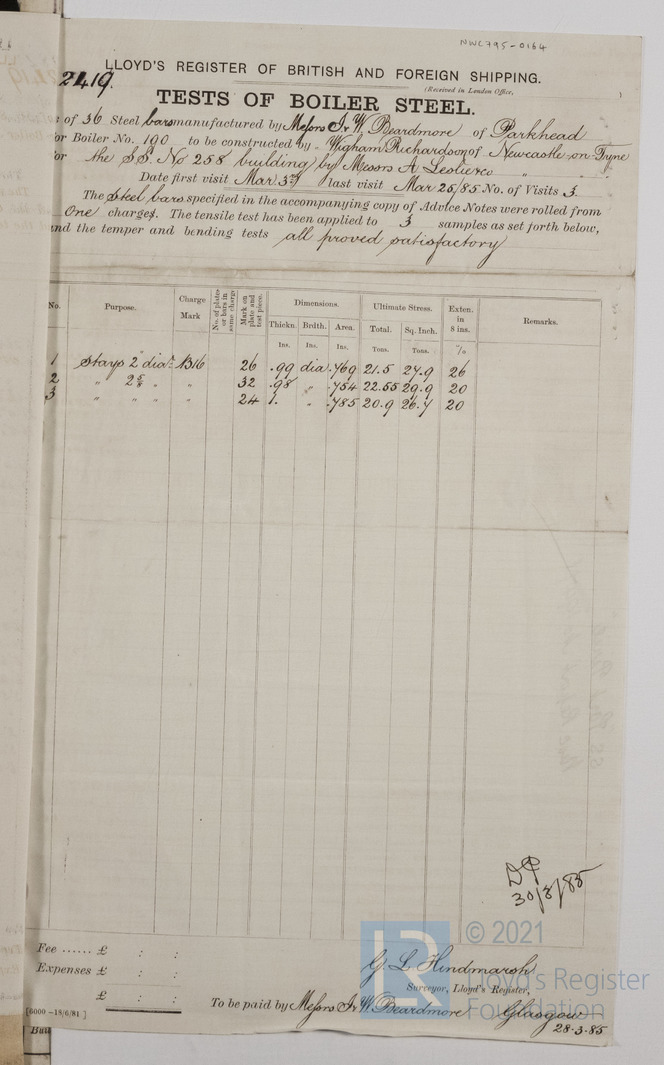 NWC795-0164
2419.
LLOYD'S REGISTER OF BRITISH AND FOREIGN SHIPPING.
(Received in London Office,
TESTS OF BOILER STEEL.
of 36 Steel bars manufactured by Messrs W. Beardmore of Parkhead
or Boiler No. 190 to be constructed by Wigham Richardson of Newcastle-on-Tyne
or the S.S. No 258 building by Messrs A Leslie & Co "
Date first visit Mar 3rd last visit Mar 25/85 No. of Visits 3
The Steel bars specified in the accompanying copy of Advice Notes were rolled from
One charges. The tensile test has been applied to 3 samples as set forth below,
and the temper and bending tests all proved satisfactory
No. Purpose. Charge Mark No. of plates or bars in same charge Mark on plate and test piece. Dimensions. Ultimate Stress. Exten. in 8 ins. Remarks.
Thickn. Brdth. Area. Total. Sq. Inch.
Ins. Ins. Ins. Tons. Tons. %
1 Stays 2" diar 1316 26 .99 dia .769 21.5 27.9 26
2 " 2 5/8 " " 32 .98 " .754 22.55 29.9 20
3 " " " " " 24 1. " .785 20.9 26.7 20
30/3/85
Fee ...... £ : :
Expenses £ : :
£ : :
G L Hindmarsh
Surveyor, Lloyd's Register,
To be paid by Messrs W. Beardmore Glasgow
28-3-85
[6000 -18/6/81]
LR © 2021
Lloyd's Register
Foundation